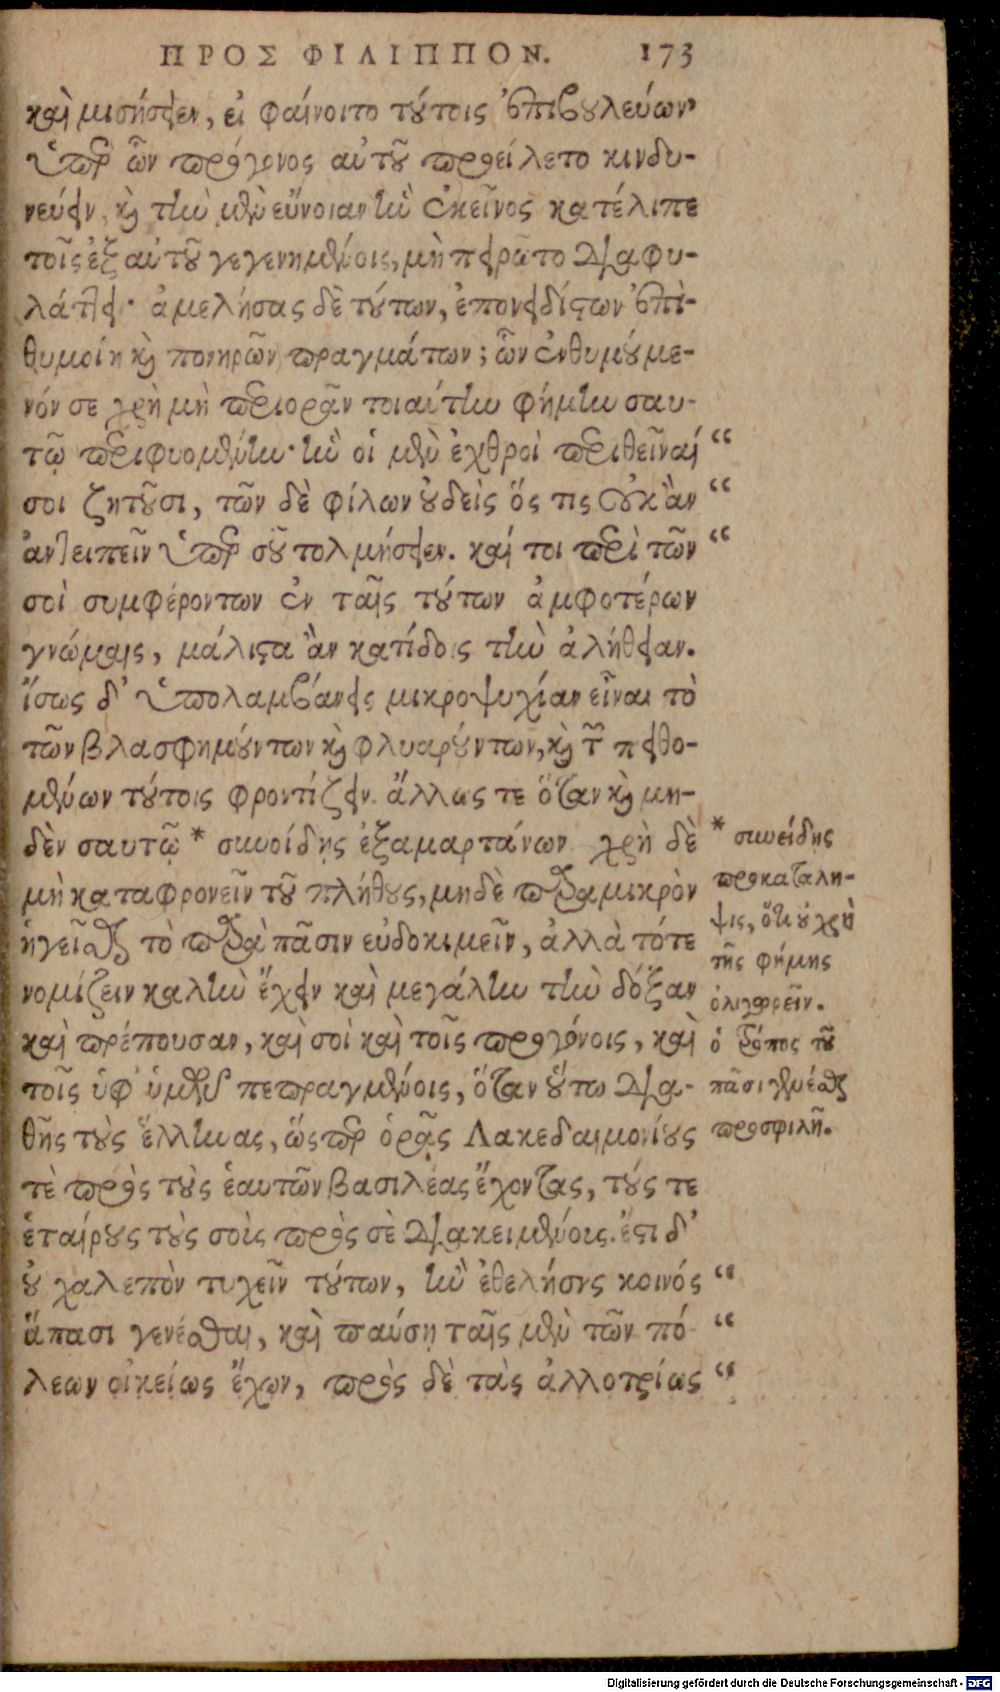 ΠΡΟΣ ΦΙΛΙΠΠΟΝ. 173
καὶ μισήσειεν, εἰ φαίνοιτο τούτοις ἐπιβουλεύων
ὑπὲρ ὧν πρόγονος αὐτοῦ προείλετο κινδυ-
νεύειν, καὶ τὴν μὲν εὔνοιαν ἣν ἐκεῖνος κατέλιπε
τοῖς ἐξ αὐτοῦ γεγενημένοις, μὴ πειρῷτο διαφυ-
λάττειν· ἀμελήσας δὲ τούτων, ἐπονειδίστων ἐπι-
θυμοίη καὶ πονηρῶν πραγμάτων; ὧν ἐνθυμούμε-
νόν σε χρὴ μὴ περιορᾶν τοιαύτην φήμην σαυ-
τῷ περιφυομένην· ἣν οἱ μὲν ἐχθροὶ περιθεῖναί “
σοι ζητοῦσι, τῶν δὲ φίλων οὐδεὶς ὅς τις οὐκ ἂν “
ἀντειπεῖν ὑπὲρ σοῦ τολμήσειεν. καί τοι περὶ τῶν “
σοὶ συμφερόντων ἐν ταῖς τούτων ἀμφοτέρων
γνώμαις, μάλιστα ἂν κατίδοις τὴν ἀλήθειαν.
ἴσως δ' ὑπολαμβάνεις μικροψυχίαν εἶναι τὸ
τῶν βλασφημούντων καὶ φλυαρούντων, καὶ τῶν πειθο-
μένων τούτοις φροντίζειν. ἄλλως τε ὅταν καὶ μη-
δὲν σαυτῷ * συνοίδης ἐξαμαρτάνων χρὴ δὲ
μὴ καταφρονεῖν τοῦ πλήθους, μηδὲ παραμικρὸν
ἡγεῖσθαι τὸ παρὰ πᾶσιν εὐδοκιμεῖν, ἀλλὰ τότε
νομίζειν καλὴν ἔχειν καὶ μεγάλην τὴν δόξαν
καὶ πρέπουσαν, καὶ σοὶ καὶ τοῖς προγόνοις, καὶ
τοῖς ὑφ' ὑμῶν πεπραγμένοις, ὅταν οὕτω δια-
θῇς τοὺς ἕλληνας, ὥσπερ ὁρᾷς Λακεδαιμονίους
τὲ πρὸς τοὺς ἑαυτῶν βασιλέας ἔχοντας, τούς τε
ἑταίρους τοὺς σοὶς πρὸς σὲ διακειμένους. ἔστι δ'
οὐ χαλεπὸν τυχεῖν τούτων, ἢν ἐθελήσῃς κοινός “
ἅπασι γενέσθαι, καὶ παύσῃ ταῖς μὲν τῶν πό- “
λεων οἰκείως ἔχων, πρὸς δὲ τὰς ἀλλοτρίως “
* συνείδης
προκαταλη-
ψις, ὅτι οὐ χρὴ
τῆς φήμης
ὀλιγωρεῖν.
ὁ τρόπος τοῦ
πᾶσι γενέσθαι
προσφιλῆ.
Digitalisierung gefördert durch die Deutsche Forschungsgemeinschaft - DFG